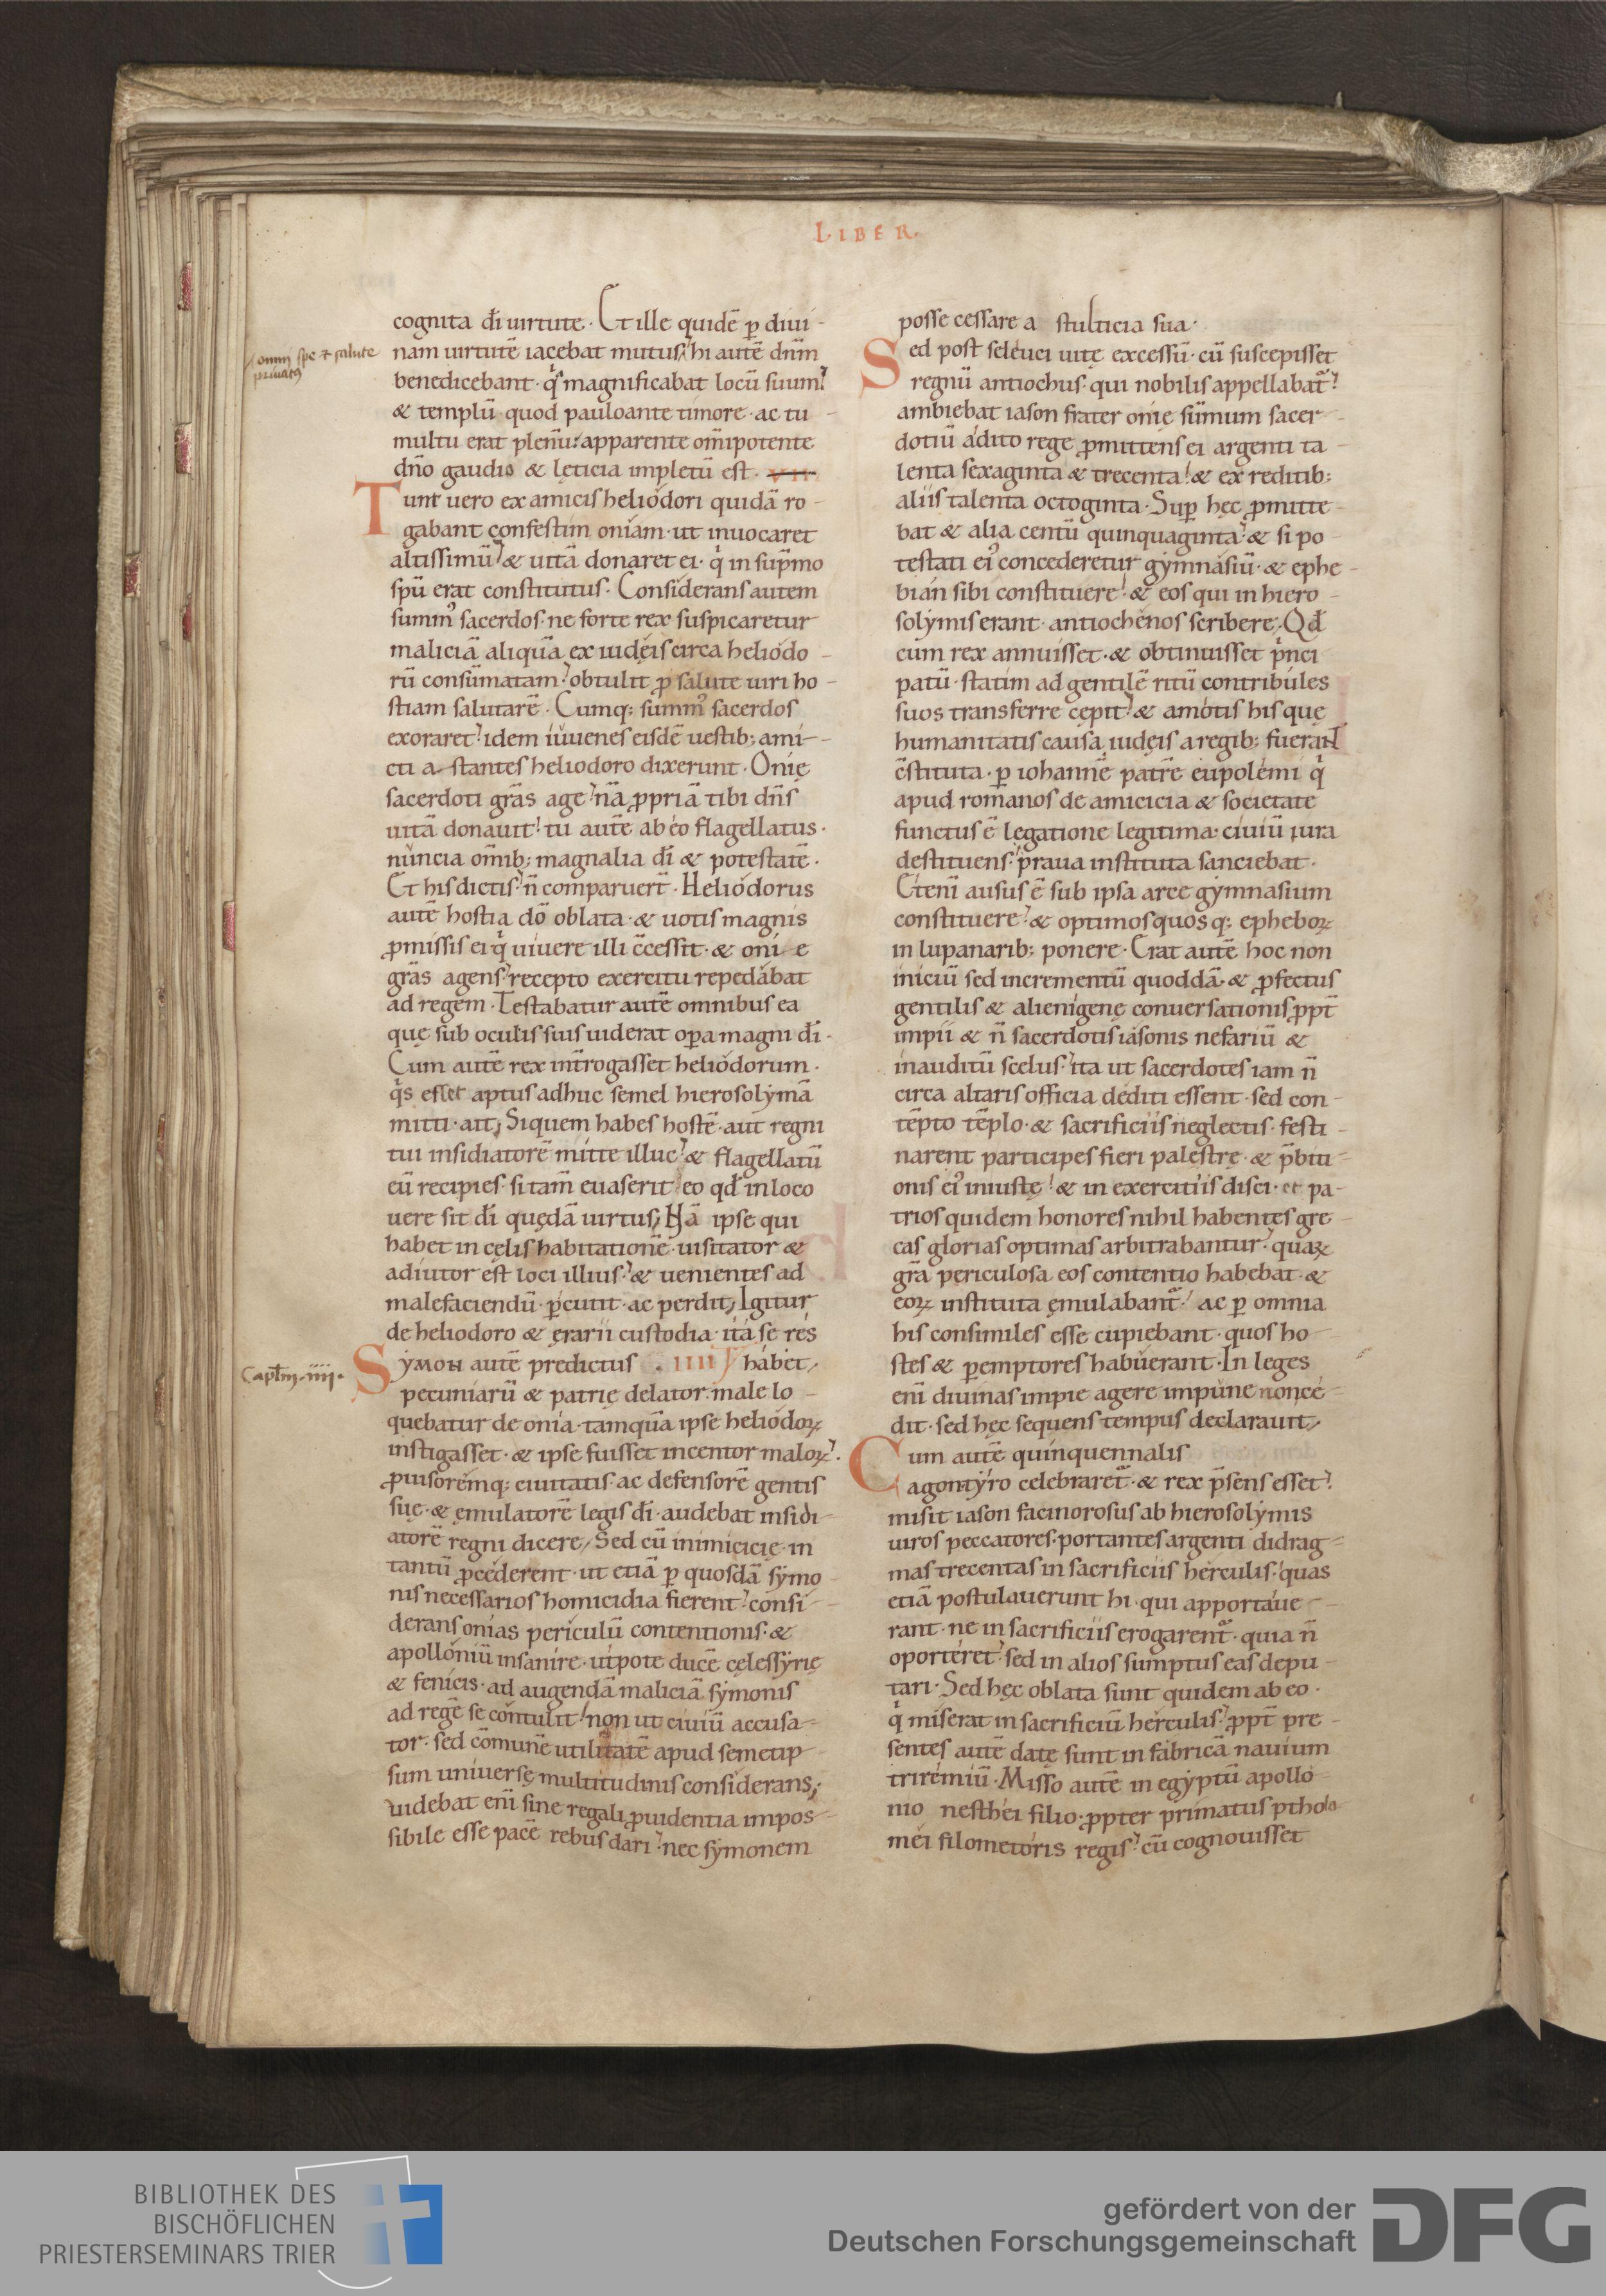 LIBER
cognita dī uirtute. Et ille quidē ꝑ diui-
nam uirtutē iacebat mutus; hi autē dnm̄
omni spe & salute
priuatꝰ
benedicebant. qͥ magnificabat locū suum.
& templū quod pauloante timore. ac tu-
multu erat plenū. apparente om̄ipotente
dn̄o gaudio & lęticia impletū est. VII
Tunt uero ex amicis heliodori quidā ro-
gabant confestim oniam. ut inuocaret
altissimū. & uitā donaret ei. qͥ in sup̄mo
spū erat constitutus. Considerans autem
summꝰ sacerdos. ne forte rex suspicaretur
maliciā aliquā ex iudęis circa heliodo-
rū consūmatam. obtulit ꝓ salute uiri ho-
stiam salutarē. Cumq; summꝰ sacerdos
exoraret. idem iuuenes eisdē uestib; ami-
cti a stantes heliodoro dixerunt. Onię
sacerdoti grās age. nā ꝓpriā tibi dn̄s
uitā donauit. tu autē ab eo flagellatus.
nuncia om̄ib; magnalia dī & potestatē.
Et his dictis. n̄ comparuer̄t. Heliodorus
autē hostia dō oblata. & uotis magnis
ꝓmissis ei qͥ uiuere illi c̄cessit. & oni e
grās agens. recepto exercitu repedabat
ad regem. Testabatur autē omnibus ea
quę sub oculis suis uiderat oꝑa magni dī.
Cum autē rex int̄rogasset heliodorum.
qͥs esset aptus adhuc semel hierosolymā
mitti. ait; Siquem habes hostē. aut regni
tui insidiatorē mitte illuc. & flagellatū
eū recipies. si tam̄ euaserit. eo qd̄ in loco
uere sit dī quędā uirtus; Nā ipse qui
habet in cęlis habitationē. uisitator &
adiutor est loci illius. & uenientes ad
malefaciendū. ꝑcutit. ac perdit; Igitur
de heliodoro & ęrarii custodia. ita se res
Symon autē predictus . IIII habet;
Capl̄m. iiii.
pecuniarū & patrię delator. male lo-
quebatur de onia. tamquā ipse heliodoꝝ
instigasset. & ipse fuisset incentor maloꝝ.
ꝓuisoremq; ciuitatis. ac defensorē gentis
suę. & ęmulatorē legis dī. audebat insidi-
atorē regni dicere; Sed cū inimicicię. in
tantū ꝓcederent. ut etiā ꝑ quosdā symo
nis necessarios homicidia fierent. consi-
derans onias periculū contentionis. &
apolloniū insanire. utpote ducē cęlessyrię
& fenicis. ad augendā maliciā symonis
ad regē se contulit. non ut ciuiū accusa-
tor. sed com̄unē utilitatē apud semetip-
sum uniuersę multitudinis considerans;
uidebat enī sine regali ꝓuidentia impos-
sibile esse pacē rebus dari. nec symonem
posse cessare a stulticia sua.
Sed post seleuci uitę excessū. cū suscepisset
regnū antiochus. qui nobilis appellabat᷑.
ambiebat iason frater onię sūmum sacer-
dotiū adito rege ꝓmittens ei argenti ta-
lenta sexaginta & trecenta. & ex reditib;
aliis talenta octoginta. Suꝑ hęc ꝓmitte-
bat & alia centū quinquaginta. & si po-
testati eiꝰ concederetur gymnasiū. & ephe-
bian sibi constituere. & eos qui in hiero-
solymis erant. antiochenos scribere; Qd̄
cum rex annuisset. & obtinuisset pͥnci
patū. statim ad gentilē ritū contribules
suos transferre cępit. & amotis his quę
humanitatis causa iudęis a regib; fuerant
c̄stituta. ꝑ iohannē patrē eupolemi qͥ
apud romanos de amicicia & societate
functus ē legatione legitima. ciuiū iura
destituens. praua instituta sanciebat.
Etenī ausus ē sub ipsa arce gymnasium
constituere. & optimos quosq; epheboꝝ
in lupanarib; ponere. Erat autē hoc non
iniciū sed incrementū quoddā. & ꝓfectus
gentilis & alienigenę conuersationis. ꝓpt̄
impii & n̄ sacerdotis iasonis nefariū &
inauditū scelus. ita ut sacerdotes iam n̄
circa altaris officia dediti essent. sed con-
tēpto tēplo. & sacrificiis neglectis. festi-
narent participes fieri palestrę. & p̄biti-
onis eiꝰ iniustę. & in exercitiis disci. et pa-
trios quidem honores nihil habentes gre-
cas glorias optimas arbitrabantur. quaꝝ
grā periculosa eos contentio habebat. &
eoꝝ instituta ęmulabant᷑. ac ꝑ omnia
his consimiles esse cupiebant. quos ho-
stes & ꝑemptores habuerant. In leges
enī diuinas impie agere impune non ce-
dit. sed hęc sequens tempus declarauit;
Cum autē quinquennalis
agon tyro celebraret᷑. & rex p̄sens esset.
misit iason facinorosus ab hierosolymis
uiros peccatores. portantes argenti didrag-
mas trecentas in sacrificiis herculis. quas
etiā postulauerunt hi. qui apportaue-
rant. ne in sacrificiis erogarent᷑. quia n̄
oporteret. sed in alios sumptus eas depu-
tari. Sed hęc oblata sunt quidem ab eo.
qͥ miserat in sacrificiū herculis. ꝓpt̄ pre-
sentes autē datę sunt in fabricā nauium
triremiū. Misso autē in egyptū apollo-
nio nesthei filio. ꝓpter primatus ptholo
mei filometoris regis. cū cognouisset
BIBLIOTHEK DES
BISCHÖFLICHEN
PRIESTERSEMINARS TRIER
gefördert von der
Deutschen Forschungsgemeinschaft
DFG